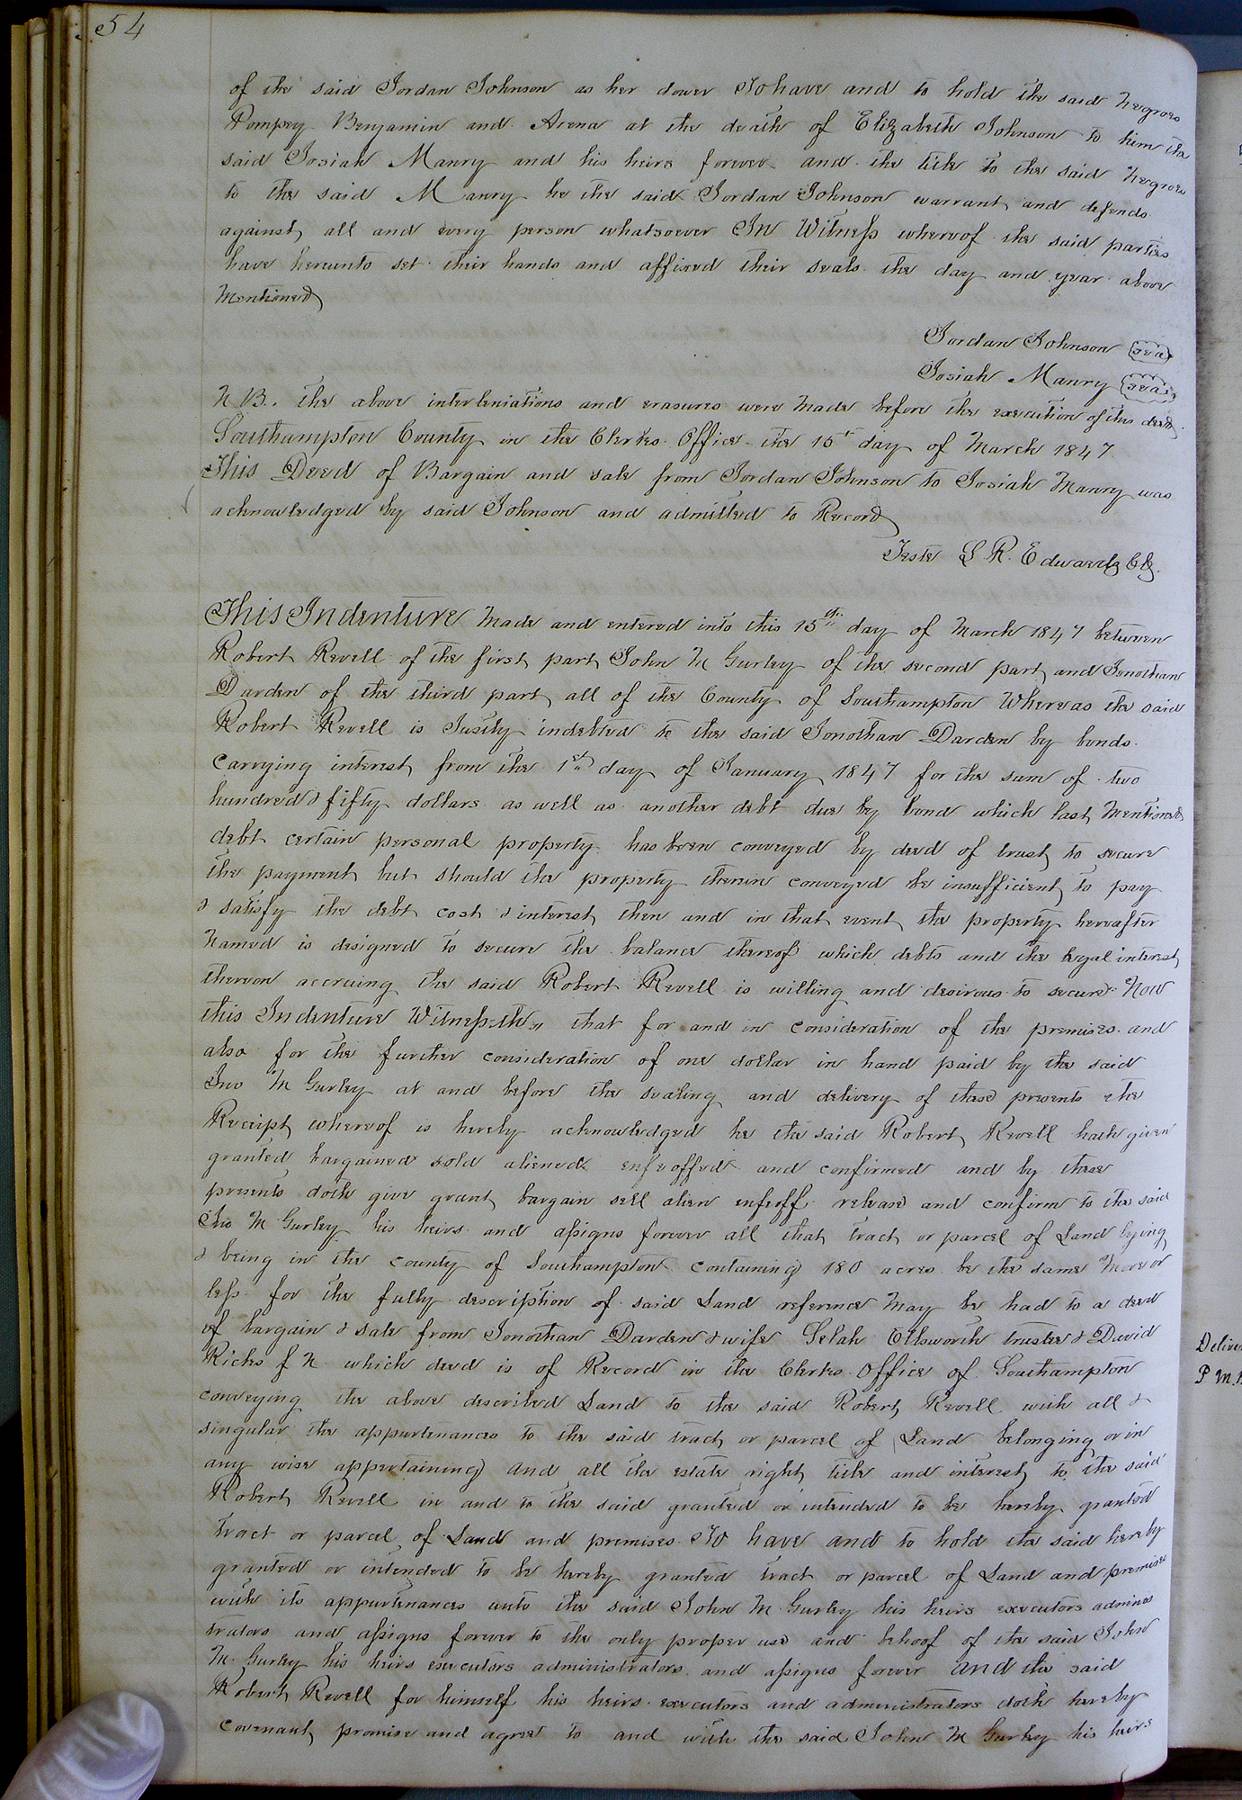 54
of the said Jordan Johnson as her dower To have and to hold the said Negroes
Pompey Benjamin and Arena at the death of Elizabeth Johnson to him the
said Josiah Manry and his heirs forever and the title to the said Negroes
to the said Manry he the said Jordan Johnson warrant and defends
against all and every person whatsoever In Witness whereof the said parties
have hereunto set their hands and affixed their seals the day and year above
Mentioned
Jordan Johnson seal
Josiah Manry seal
N B. the above interleniations and erasures were Made before the execution of this deed
Southampton County in the Clerks Office the 15t day of March 1847
This Deed of Bargain and sale from Jordan Johnson to Josiah Manry was
acknowledged by said Johnson and admitted to Record
Teste L R. Edwards Clk.
This Indenture Made and entered into this 15th day of March 1847 between
Robert Revell of the first part John M Gurley of the second part and Jonothan
Darden of the third part all of the County of Southampton Whereas the said
Robert Revell is Justly indebted to the said Jonothan Darden by bonds
Carrying interest from the 1st day of January 1847 for the sum of two
hundred & fifty dollars as well as another debt due by bond which last Mentioned
debt certain personal property has been conveyed by deed of trust to secure
the payment but should the property therein conveyed be insufficient to pay
& satisfy the debt cost & interest then and in that event the property hereafter
Named is designed to secure the balance thereof which debts and the legal interest
thereon accruing the said Robert Revell is willing and desirous to secure Now
this Indenture Witnesseth that for and in consideration of the premises and
also for the further consideration of one dollar in hand paid by the said
Jno M Gurley at and before the sealing and delivery of these presents the
Receipt whereof is hereby acknowledged he the said Robert Revell hath given
granted bargained sold aliened enfeoffed and confirmed and by these
presents doth give grant bargain sell alien enfeoff release and confirm to the said
Jno M Gurley his heirs and assigns forever all that tract or parcel of Land lying
& being in the county of Southampton containing 180 acres be the same More or
less for the fully description of said Land reference May be had to a deed
of bargain & sale from Jonothan Darden & wife Selah Ellsworth trustee & David
Ricks f N which deed is of Record in the Clerks Office of Southampton
conveying the above described Land to the said Robert Revell with all &
singular the appurtenances to the said tract or parcel of Land belonging or in
any wise appertaining and all the estate right title and interest to the said
Robert Revell in and to the said granted or intended to be hereby granted
tract or parcel of Land and premises To have and to hold the said hereby
granted or intended to be hereby granted tract or parcel of Land and premises
with its appurtenances unto the said John M Gurley his heirs executors adminis
trators and assigns forever to the only proper use and behoof of the said John
M. Gurley his heirs executors administrators and assigns forever and the said
Robert Revell for himself his heirs executors and administrators doth hereby
covenant promise and agree to and with the said John M Gurley his heirs